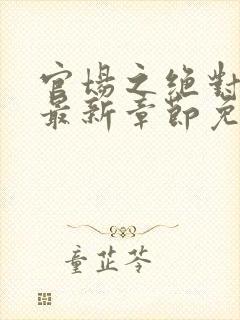 官場之絕對
最新章節免
童芷苓